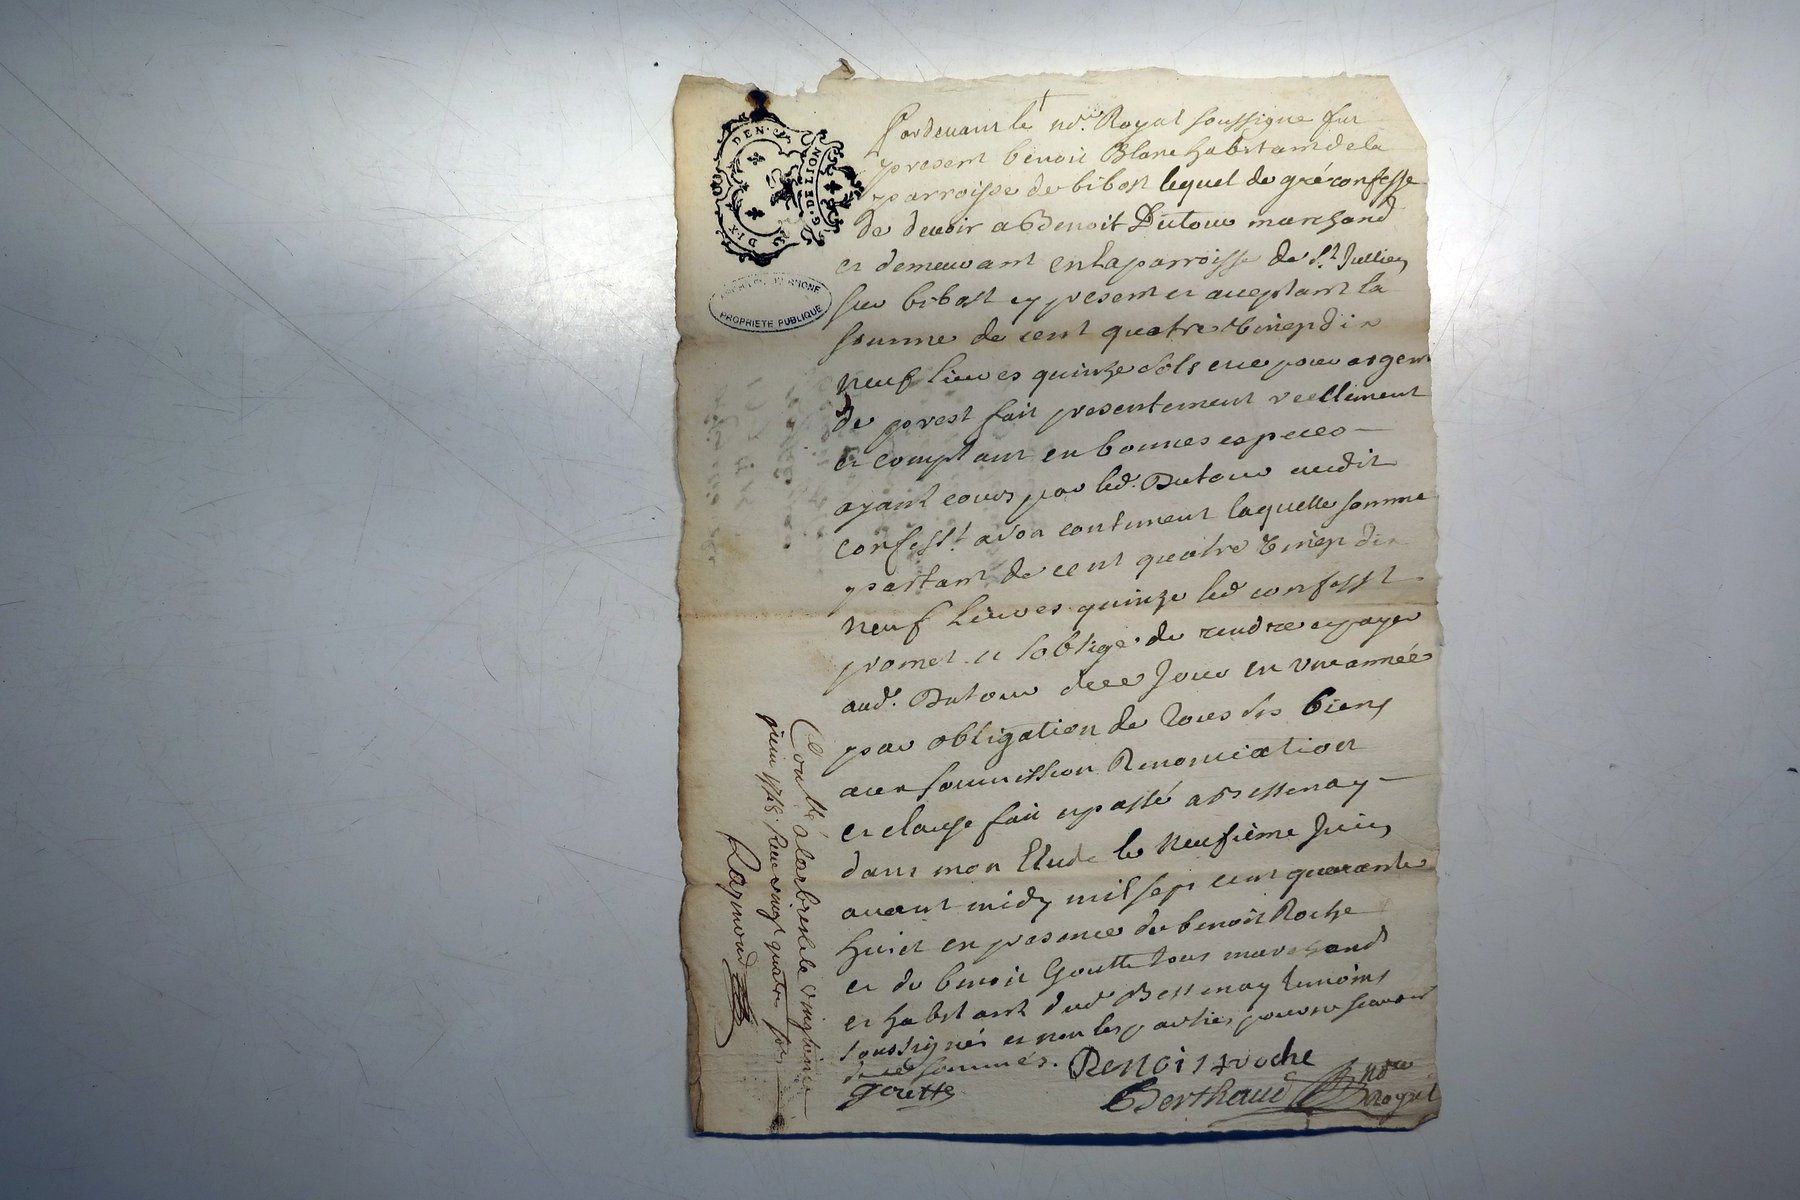 DIX DEN.ERS
G. DE LION
ARCHIVES DU RHONE
PROPRIETE PUBLIQUE
Pardevant le no.re Royal soussigne fut
present benoit Blanc habitant de la
parroisse de bibost lequel de gré confesse
de devoir a Benoit Dutour marchand
et demeurant en la parroisse de St Jullien
sur bibost cy present et aceptant la
somme de cent quatre vingt dix
neuf livres quinze sols et ce pour argent
de prest fait presentement reellement
et comptant en bonnes especes
ayant cours par led. Dutour audit
confess.t a son contentement laquelle somme
partant de cent quatre vingt dix
neuf livres quinze led confesst
promet et soblige de rendre et payer
aud. Dutour de ce jour en une année
par obligation de tous ses biens
avec soumission Renonciation
et clause fait et passé a Bessenay
dans mon Etude le neufième Juin
avant midy mil sept cent quarante
huict en presence de benoit Roche
et de benoit Goutte tous marchand
et habitant dud Bessenay temoins
soussignés et non les parties pour ne scavoir
de ce sommés. Benoist roche
goutte Berthaud no.re royal
Conllé a larbresle le vingtieme
juin 1748. Receu vingt quatre sols
Raymond